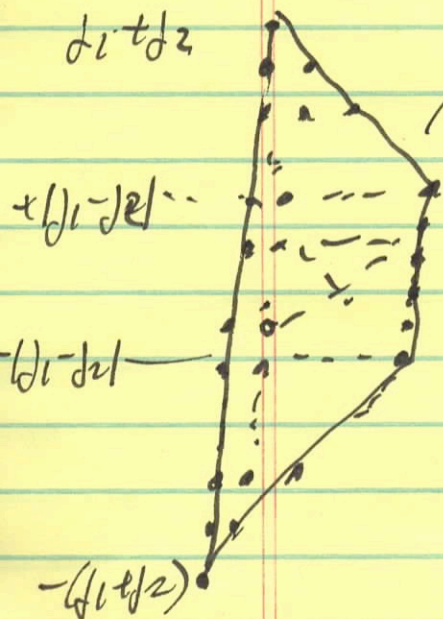 j1 + j2
+|j1 - j2|
-|j1 - j2|
-(j1 + j2)